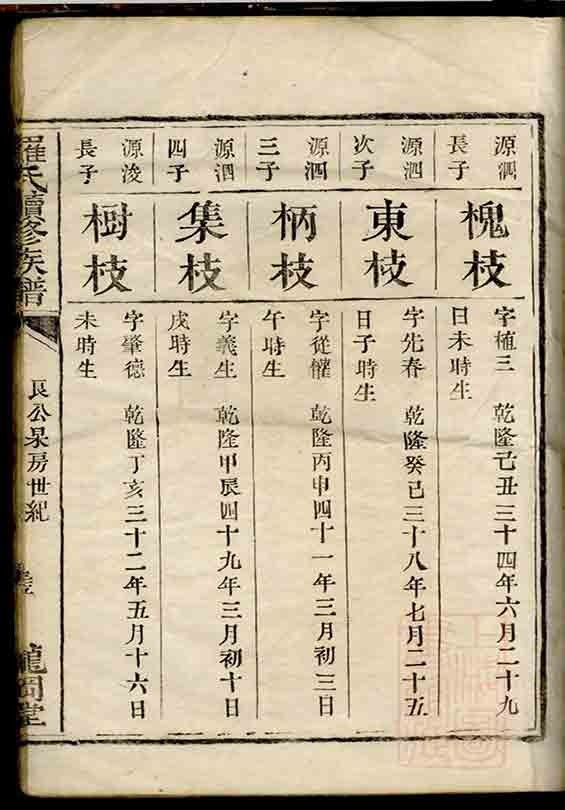 源泗
長子
槐枝
字植三 乾隆己丑三十四年六月二十九
日未時生
源泗
次子
東枝
字先春 乾隆癸巳三十八年七月二十五
日子時生
源泗
三子
柄枝
字從懽 乾隆丙申四十一年三月初三日
午時生
源泗
四子
集枝
字義生 乾隆甲辰四十九年三月初十日
戌時生
源浚
長子
樹枝
字肇德 乾隆丁亥三十二年五月十六日
未時生
羅氏續修族譜
艮公杲房世紀
龍岡堂